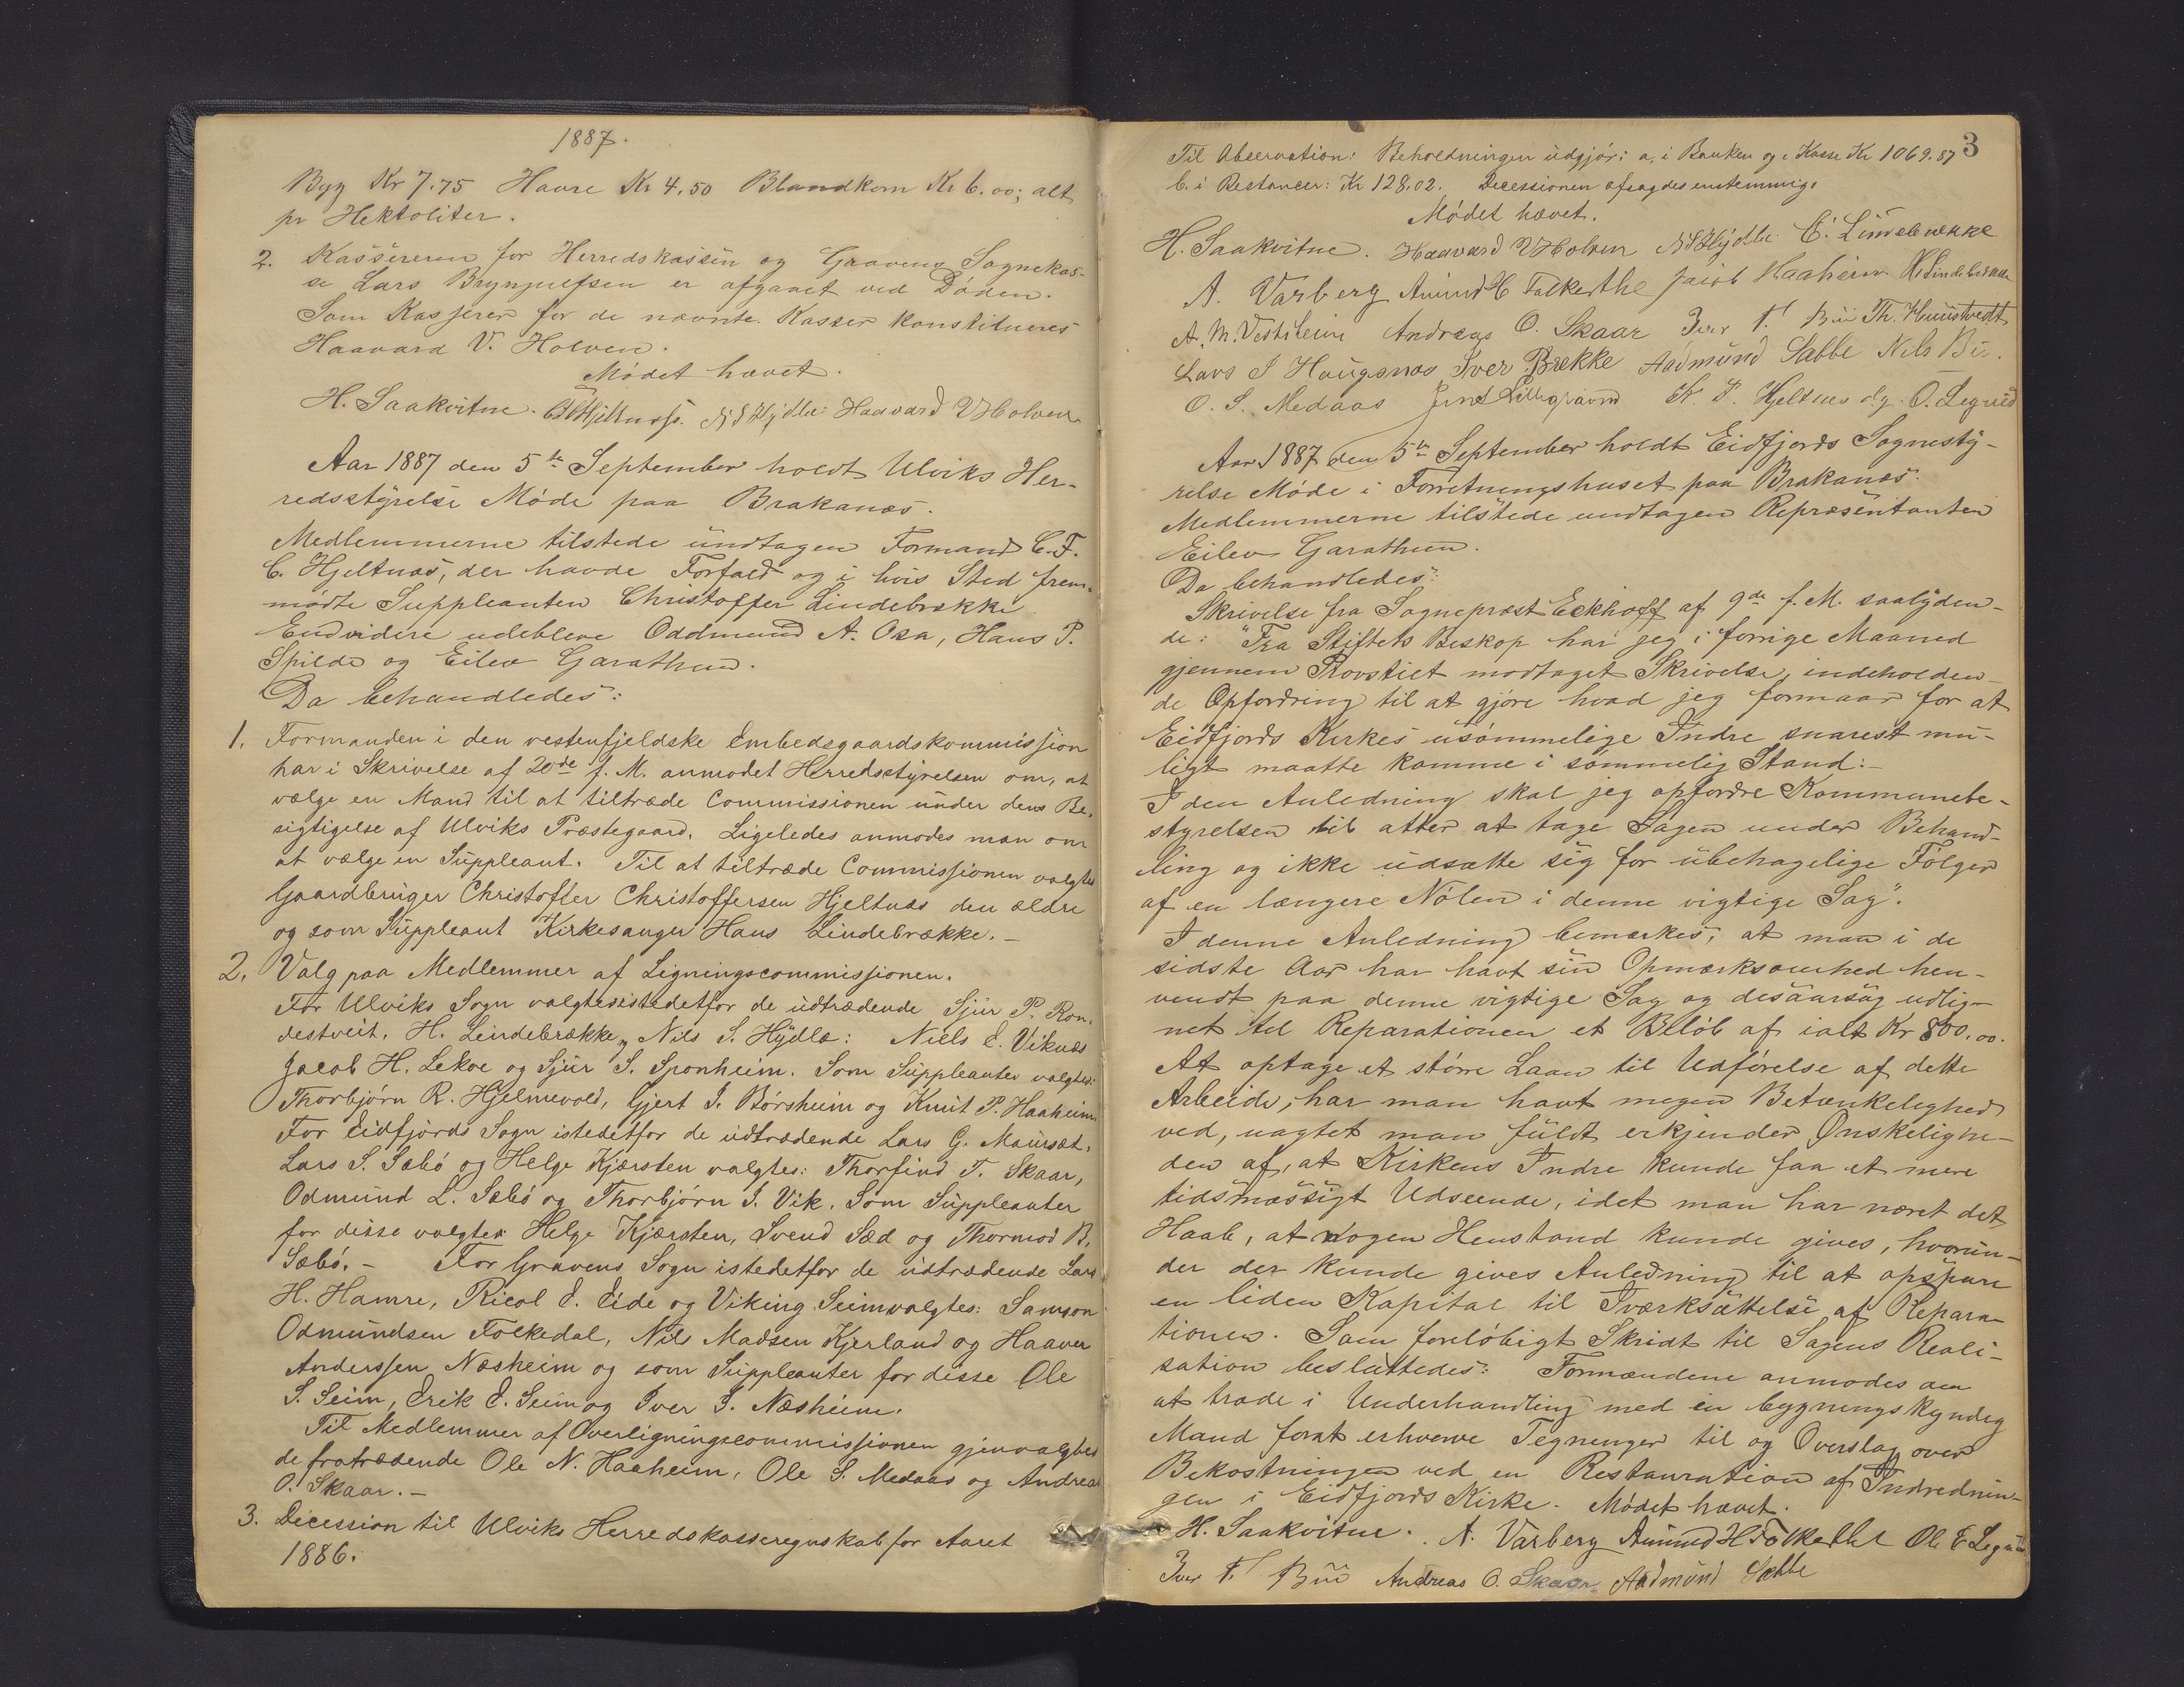 1887.
Byg Kr 7.75 Havre Kr 4.50 Blandkorn Kr 6.00; alt
pr Hektoliter.
2. Kassereren for Herredskassen og Gravens Sognekas-
se Lars Brynjulfsen er afgaaet ved Døden.
Som Kasserer for de nævnte Kasser konstitueres
Haavard V. Holven.
Mødet hævet.
H. Saakvitne. N S Hydle. Haavard V Holven
Aar 1887 den 5te September holdt Ulviks Her-
redsstyrelse Møde paa Brakanæs.
Medlemmerne tilstede undtagen Formand C. F.
C. Hjeltnæs, der havde Forfald og i hvis Sted frem-
mødte Suppleanten Christoffer Lindebrække.
Endvidere udebleve Oddmund A. Osa, Hans P.
Spilde og Eilev Garathun.
Da behandledes:
1. Formanden i den vestenfjeldske Embedsgaardskommission
har i Skrivelse af 20de f. M. anmodet Herredsstyrelsen om, at
vælge en Mand til at tiltræde Commissionen under dens Be-
sigtigelse af Ulviks Præstegaard. Ligeledes anmodes man om
at vælge en Suppleant. Til at tiltræde Commissionen valgtes
Gaardbruger Christoffer Christoffersen Hjeltnæs den ældre
og som Suppleant Kirkesanger Hans Lindebrække. –
2. Valg paa Medlemmer af Ligningscommissionen.
For Ulviks Sogn valgtes istedetfor de udtrædende Sjur P. Ron-
destveit, H. Lindebrække, Nils S. Hydle: Niels E. Viknæs
Jacob H. Lekve og Sjur S. Sponheim. Som Suppleanter valgtes:
Thorbjørn R. Hjelmevold, Gjert I. Børsheim og Knut P. Haaheim
For Eidfjords Sogn istedetfor de udtrædende Lars G. Maursæt,
Lars S. Sæbø og Helge Kjærsten valgtes: Thorfind T. Skaar,
Odmund L. Sæbø og Thorbjørn I. Vik. Som Suppleanter
for disse valgtes Helge Kjærsten, Svend Sæd og Thormod B.
Sæbø. – For Gravens Sogn istedetfor de udtrædende Lars
H. Hamre, Ricol E. Eide og Viking Seim valgtes: Samson
Odmundsen Folkedal, Nils Madsen Kjerland og Haaver
Anderssen Næsheim og som Suppleanter for disse Ole
S. Seim, Erik E. Seim og Iver I. Næsheim.
Til Medlemmer af Overligningscommissionen gjenvalgtes
de fratrædende Ole N. Haaheim, Ole S. Medaas og Andreas
O. Skaar. –
3. Decession til Ulviks Herredskasseregnskab for Aaret
1886.
3
Til Observation: Beholdningen udgjør: a, i Banken og i Kasse Kr 1069.87
b. i Restancer: Kr 128.02. Decessionen afsagdes enstemmig.
Mødet hævet.
H. Saakvitne. Haavard V Holven N S Hydle C. Lindebrække
A. Varberg Amund H Falkethe Jacob Haaheim H. Lindebrække
A. M. Vestrheim Andreas O. Skaar Iver T. Bu Th. Kvustvedt
Lars J Haugsnæs Iver Brække Aadmund Sæbbe Nils Bu.
O. S. Medaas K. P. Hjeltnes d.y. O. Legreid
Aar 1887 den 5te September holdt Eidfjords Sognesty-
relse Møde i Forretningshuset paa Brakanæs.
Medlemmerne tilstede undtagen Repræsentanten
Eilev Garathun.
Da behandledes:
Skrivelse fra Sogneprest Eckhoff af 9de f. M. saalyden-
de: "Fra Stiftets Biskop har jeg i forrige Maaned
gjennem Provstiet modtaget Skrivelse, indeholden-
de Opfordring til at gjøre hvad jeg formaar for at
Eidfjords Kirkes usømmelige Indre snarest mu-
ligt maatte komme i sømmelig Stand: –
I den Anledning skal jeg opfordre Kommunebe-
styrelsen til atter at tage Sagen under Behand-
ling og ikke udsætte sig for ubehagelige Følger
af en længere Nølen i denne vigtige Sag".
I denne Anledning bemærkes, at man i de
sidste Aar har havt sin Opmærksomhed hen-
vendt paa denne vigtige Sag og desaarsag udlig-
net til Reparationen et Beløb af ialt Kr 800.00.
At optage et større Laan til Udførelse af dette
Arbeide, har man havt megen Betænkelighed
ved, uagtet man fuldt erkjender Ønskelighe-
den af, at Kirkens Indre kunde faa et mere
tidsmæssigt Udseende, idet man har næret det
Haab, at nogen Henstand kunde gives, hvorun-
der der kunde gives Anledning til at opspare
en liden Kapital til Iværksættelse af Repara-
tionen. Som foreløbigt Skridt til Sagens Reali-
sation besluttedes: Formændene anmodes om
at træde i Underhandling med en bygningskyndig
Mand for at erhverve Tegninger til og Overslag over
Bekostningen ved en Restauration af Indrednin-
gen i Eidfjords Kirke. Mødet hævet.
H. Saakvitne. A. Varberg Amund H Folkethe Ole E Legreid
Iver T. Bu Andreas O. Skaar Aadmund Sæbbe